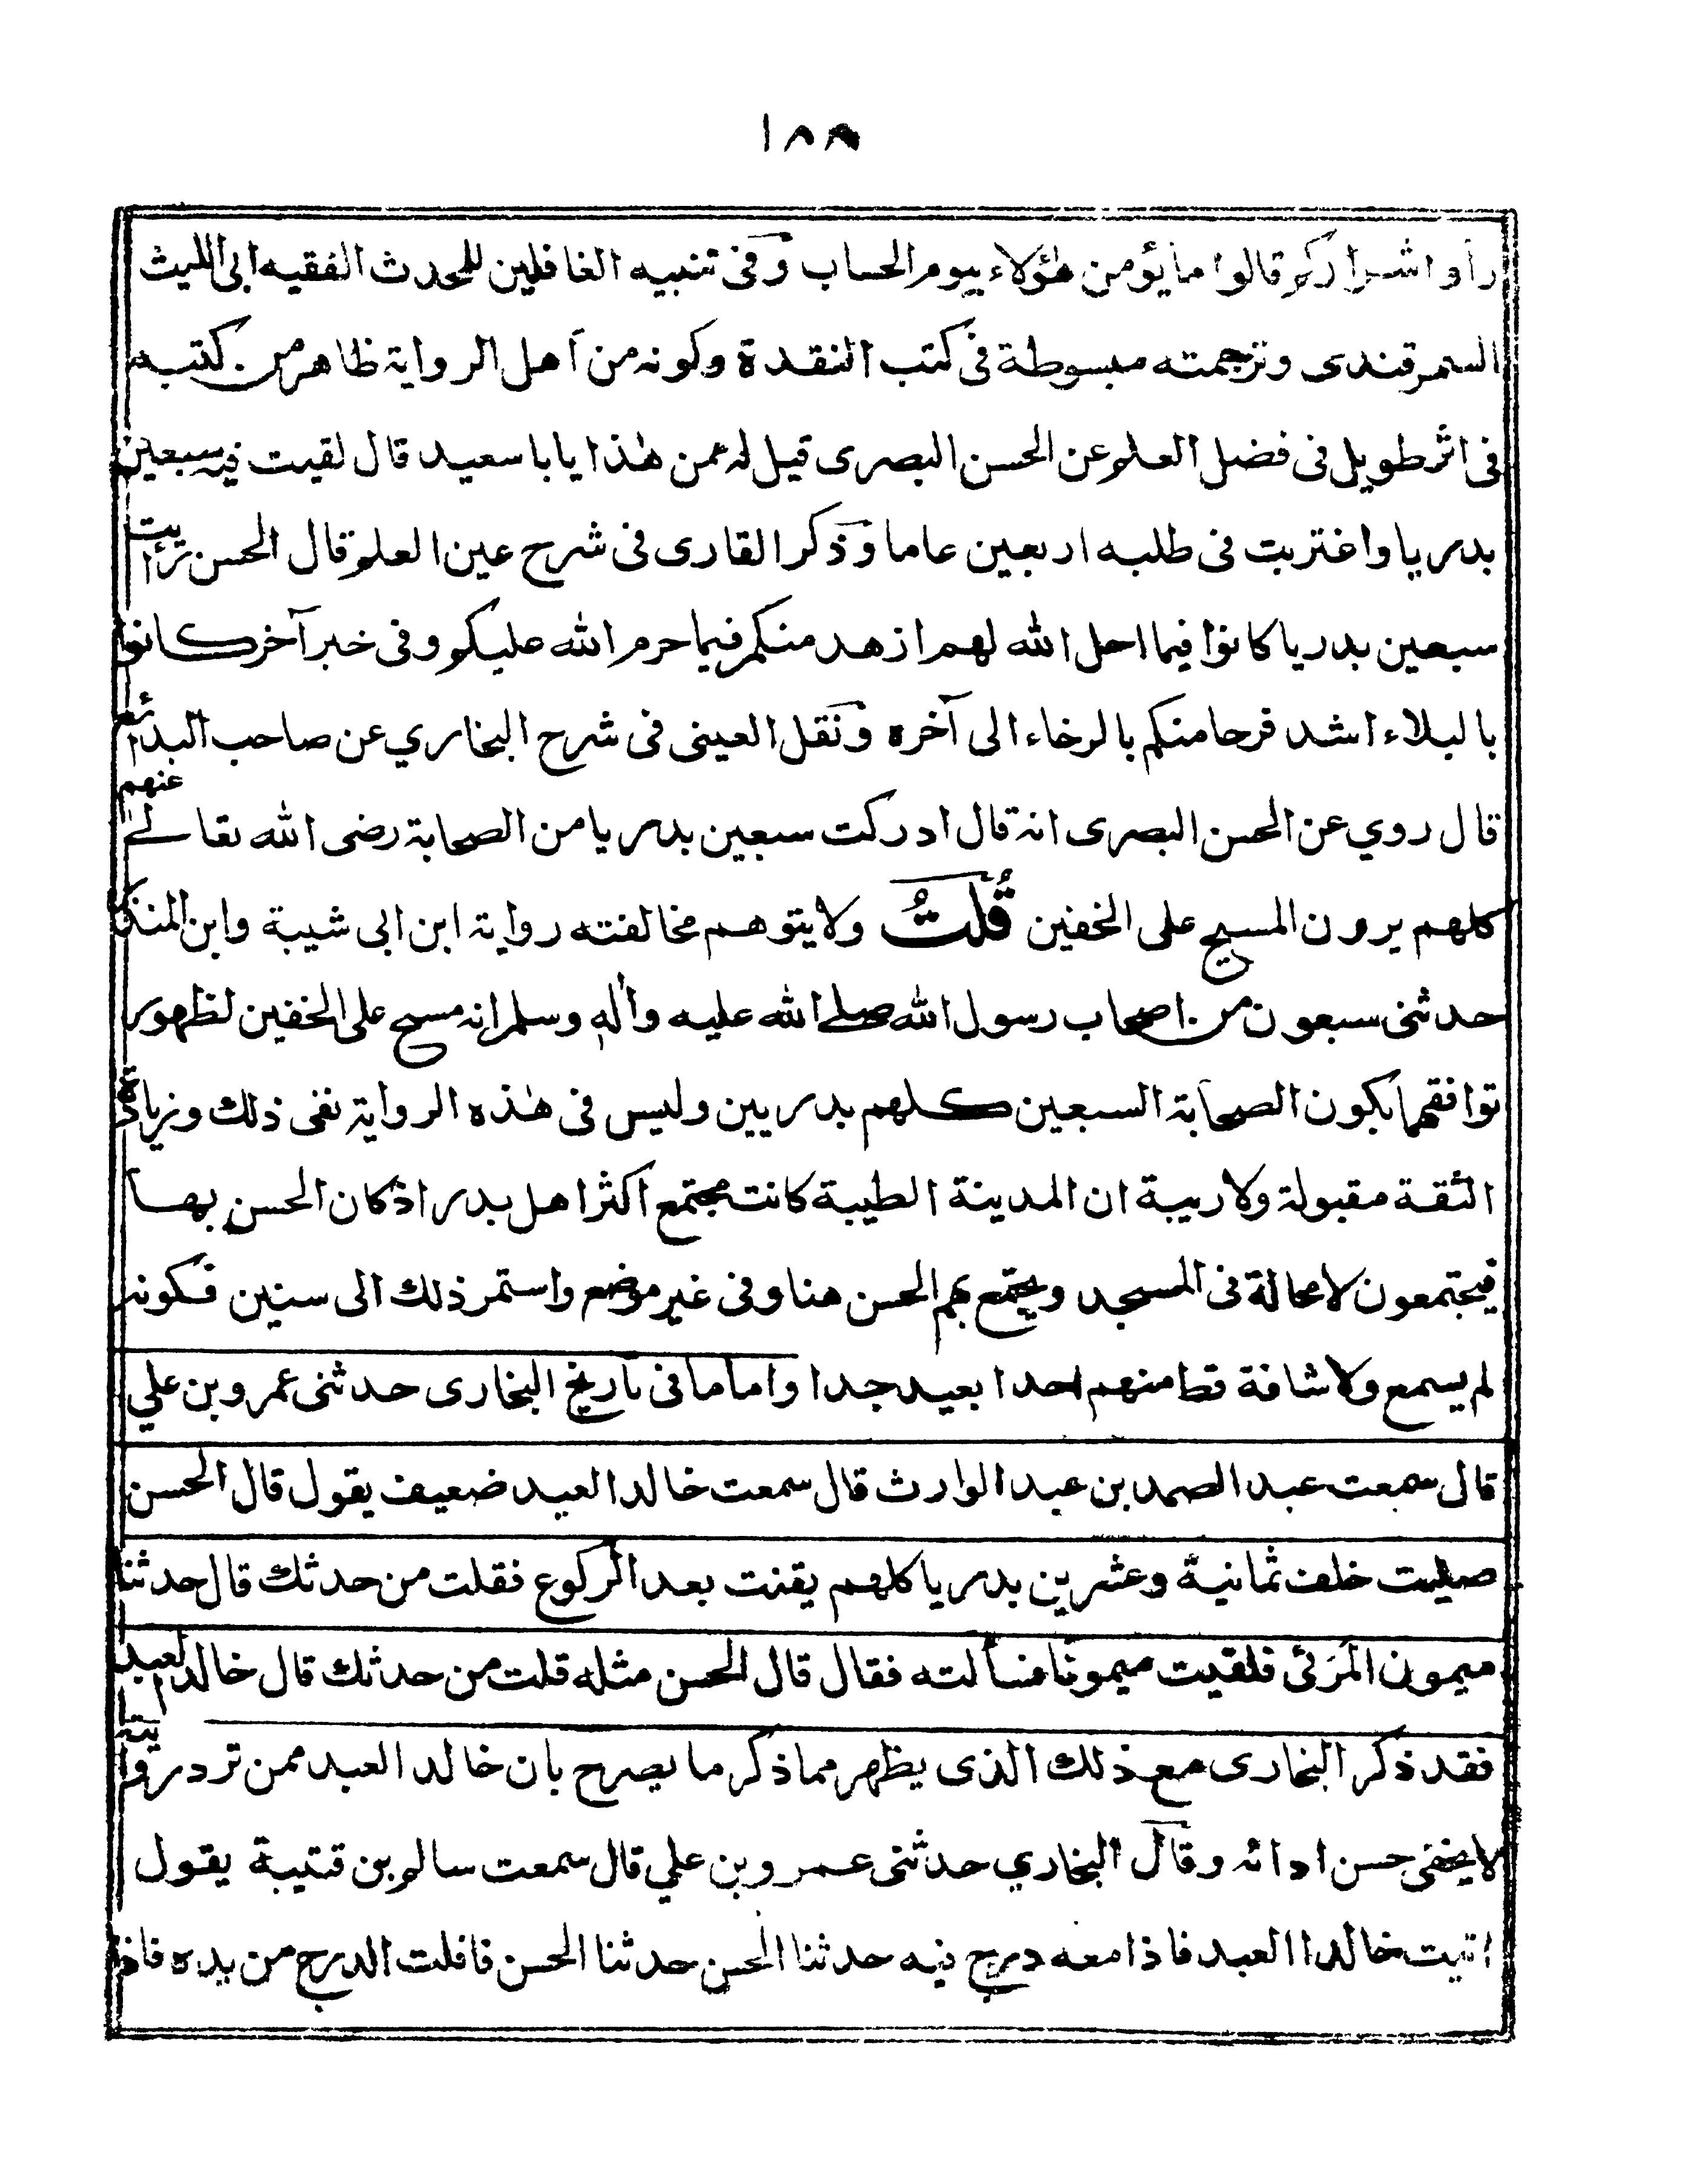 ١٨٨
رأوا شراركم قالوا ما يؤمن هٰؤلاء بيوم الحساب وفى تنبيه الغافلين للمحدث الفقيه ابى الليث
السمرقندى وترجمته مبسوطة فى كتب النقدة وكونه من أهل الرواية ظاهر من كتبه
فى اثر طويل فى فضل العلم عن الحسن البصرى قيل له عمن هٰذا يا با سعيد قال لقيت فيه سبعين
بدريا واغتربت فى طلبه اربعين عاما وذكر القارى فى شرح عين العلم قال الحسن رأيت
سبعين بدريا كانوا فيما احل الله لهم ازهد منكم فيما حرم الله عليكم وفى خبر آخر كانوا
بالبلاء اشد فرحا منكم بالرخاء الى آخره ونقل العينى فى شرح البخاري عن صاحب البدائع
قال روي عن الحسن البصرى انه قال ادركت سبعين بدريا من الصحابة رضى الله تعالے عنهم
كلهم يرون المسح على الخفين قُلتُ ولا يتوهم مخالفته رواية ابن ابى شيبة وابن المنذر
حدثنى سبعون من اصحاب رسول الله صلے الله عليه وأله وسلم انه مسح على الخفين لظهور
توافقهما بكون الصحابة السبعين كلهم بدريين وليس فى هٰذه الرواية نفى ذلك وزيادة
الثقة مقبولة ولا ريبة ان المدينة الطيبة كانت مجتمع اكثر اهل بدر اذ كان الحسن بها
فيجتمعون لا محالة فى المسجد ويجتمع بهم الحسن هنا وفى غير موضع واستمر ذلك الى سنين فكونه
لم يسمع ولا شافة قط منهم احدا بعيد جدا واما ما فى تاريخ البخارى حدثنى عمرو بن علي
قال سمعت عبد الصمد بن عبد الوارث قال سمعت خالد العبد ضعيف يقول قال الحسن
صليت خلف ثمانية وعشرين بدريا كلهم يقنت بعد الركوع فقلت من حدثك قال حدثنا
ميمون المَرَئى فلقيت ميمونا فسألته فقال قال الحسن مثله قلت من حدثك قال خالد العبد
فقد ذكر البخارى مع ذلك الذى يظهر مما ذكر ما يصرح بان خالد العبد ممن ترد روايته
لا يخفى حسن ادائه وقال البخاري حدثنى عمرو بن علي قال سمعت سالم بن قتيبة يقول
اتيت خالدا العبد فاذا معه درج فيه حدثنا الحسن حدثنا الحسن فافلت الدرج من يده فاذا